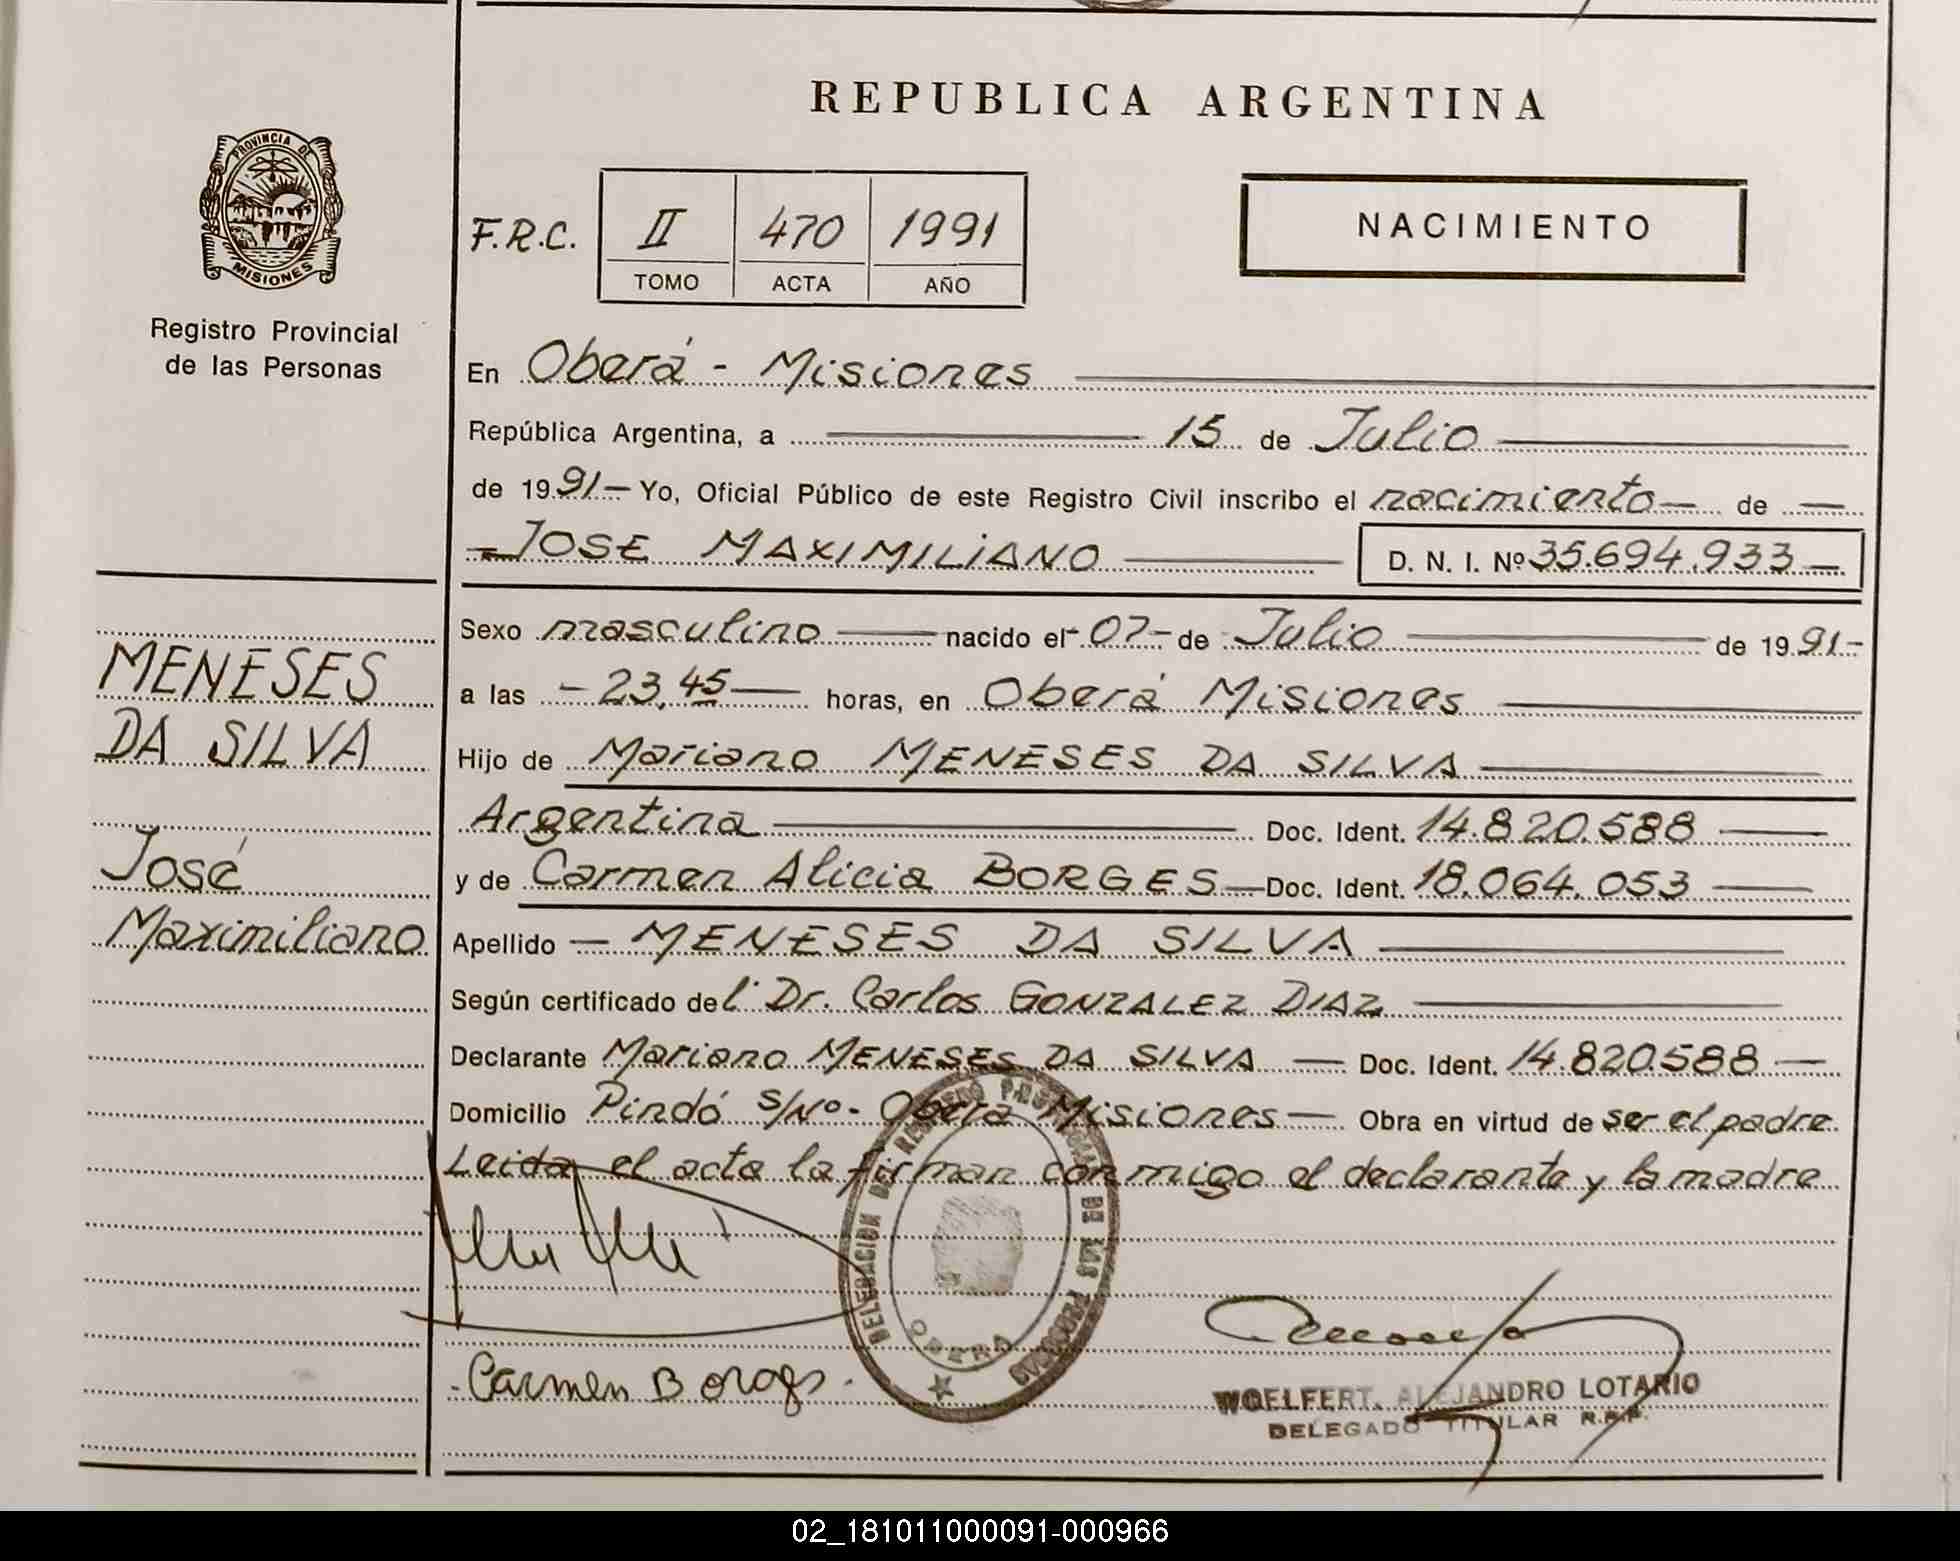 REPUBLICA ARGENTINA
PROVINCIA DE
MISIONES
Registro Provincial
de las Personas
F.R.C. II 470 1991
TOMO ACTA AÑO
NACIMIENTO
MENESES
DA SILVA
José
Maximiliano
En Oberá - Misiones
República Argentina, a 15 de Julio
de 1991 - Yo, Oficial Público de este Registro Civil inscribo el nacimiento - de -
- JOSE MAXIMILIANO D. N. I. Nº 35.694.933 -
Sexo masculino nacido el - 07 - de Julio de 1991 -
a las - 23,45 - horas, en Oberá Misiones
Hijo de Mariano MENESES DA SILVA
Argentina Doc. Ident. 14.820.588
y de Carmen Alicia BORGES - Doc. Ident. 18.064.053
Apellido - MENESES DA SILVA
Según certificado del Dr. Carlos GONZALEZ DIAZ
Declarante Mariano MENESES DA SILVA - Doc. Ident. 14.820.588 -
Domicilio Pindó s/Nº - Oberá Misiones - Obra en virtud de ser el padre.
Leida el acta la firman conmigo el declarante y la madre
DELEGACION DEL REGISTRO PROVINCIAL DE LAS PERSONAS
OBERA
Carmen Borges
WOELFERT, ALEJANDRO LOTARIO
DELEGADO TITULAR R.P.P.
02_181011000091-000966